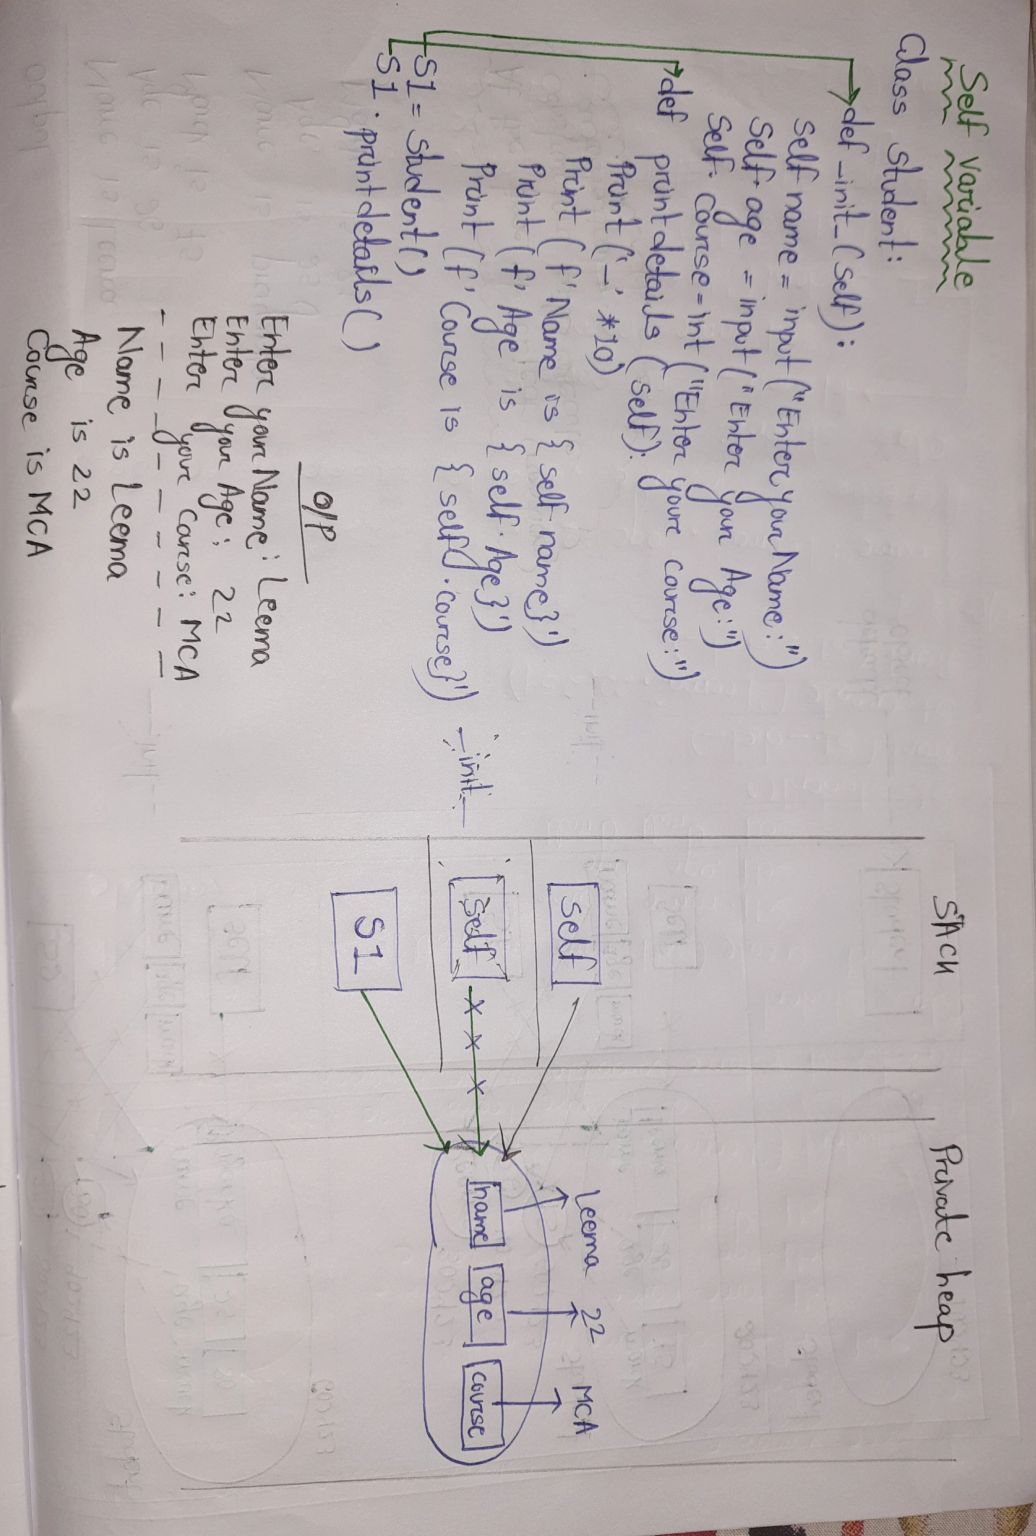 Self variable
Class Student:
def _init_(self):
self name = input("Enter your Name:")
Self. age = input("Enter your Age:")
Self. Course = int("Enter your course:")
def print details (self):
Print('-' *10)
Print (f'Name is {self.name}')
Print (f' Age is {self.Age}')
Print (f' Course is {self.course}')
S1 = Student()
S1 . print details()
O/P
Enter your Name: Leema
Enter your Age: 22
Enter your Carse: MCA
- - - - - - - - - -
Name is Leema
Age is 22
Course is MCA
STACK
_init_
self
Self
S1
Private heap
Leema 22 MCA
name age course